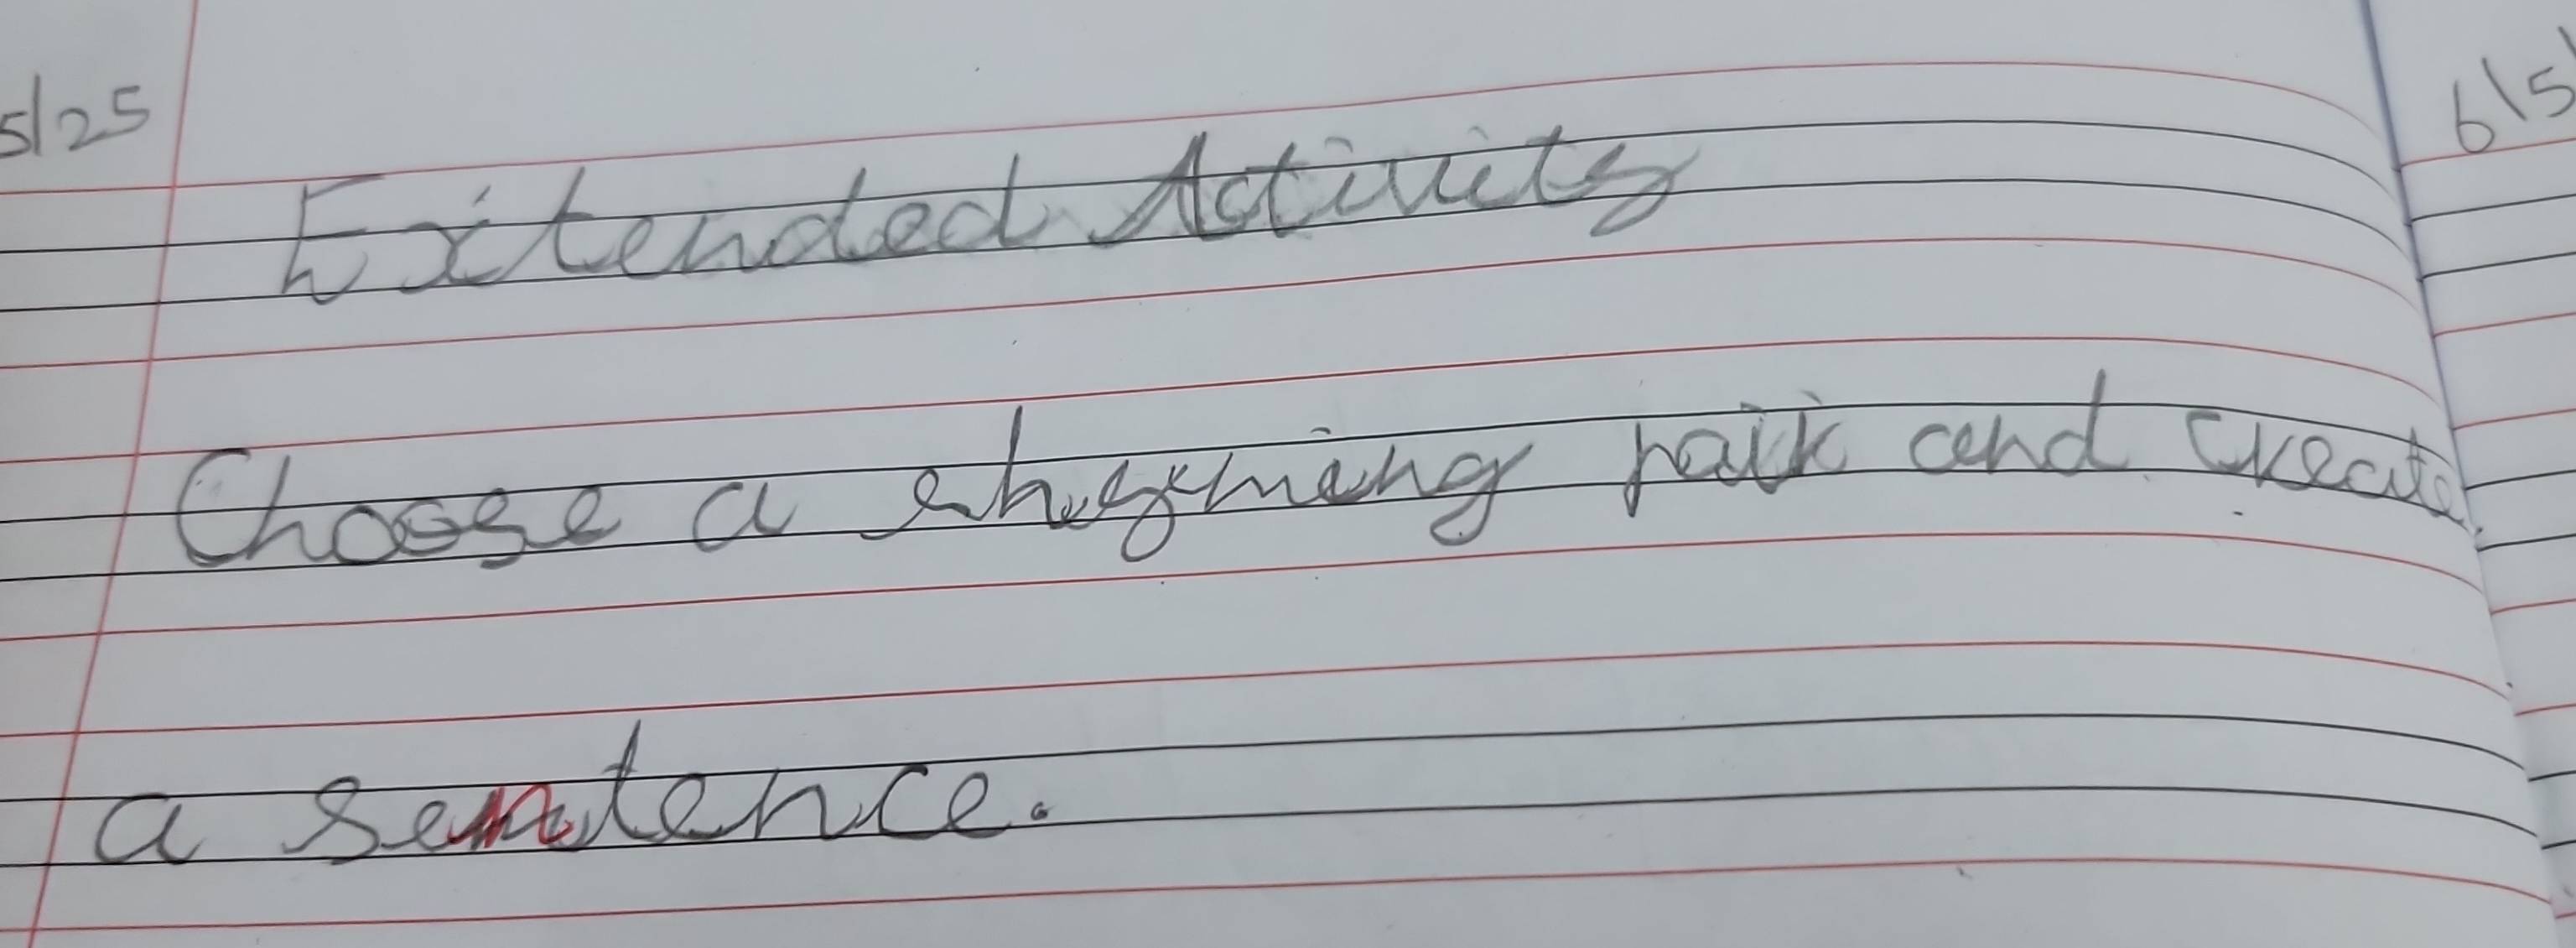 5/25
6\5\
Extended Activity
Choose a rhyming pair and create
a sentence.